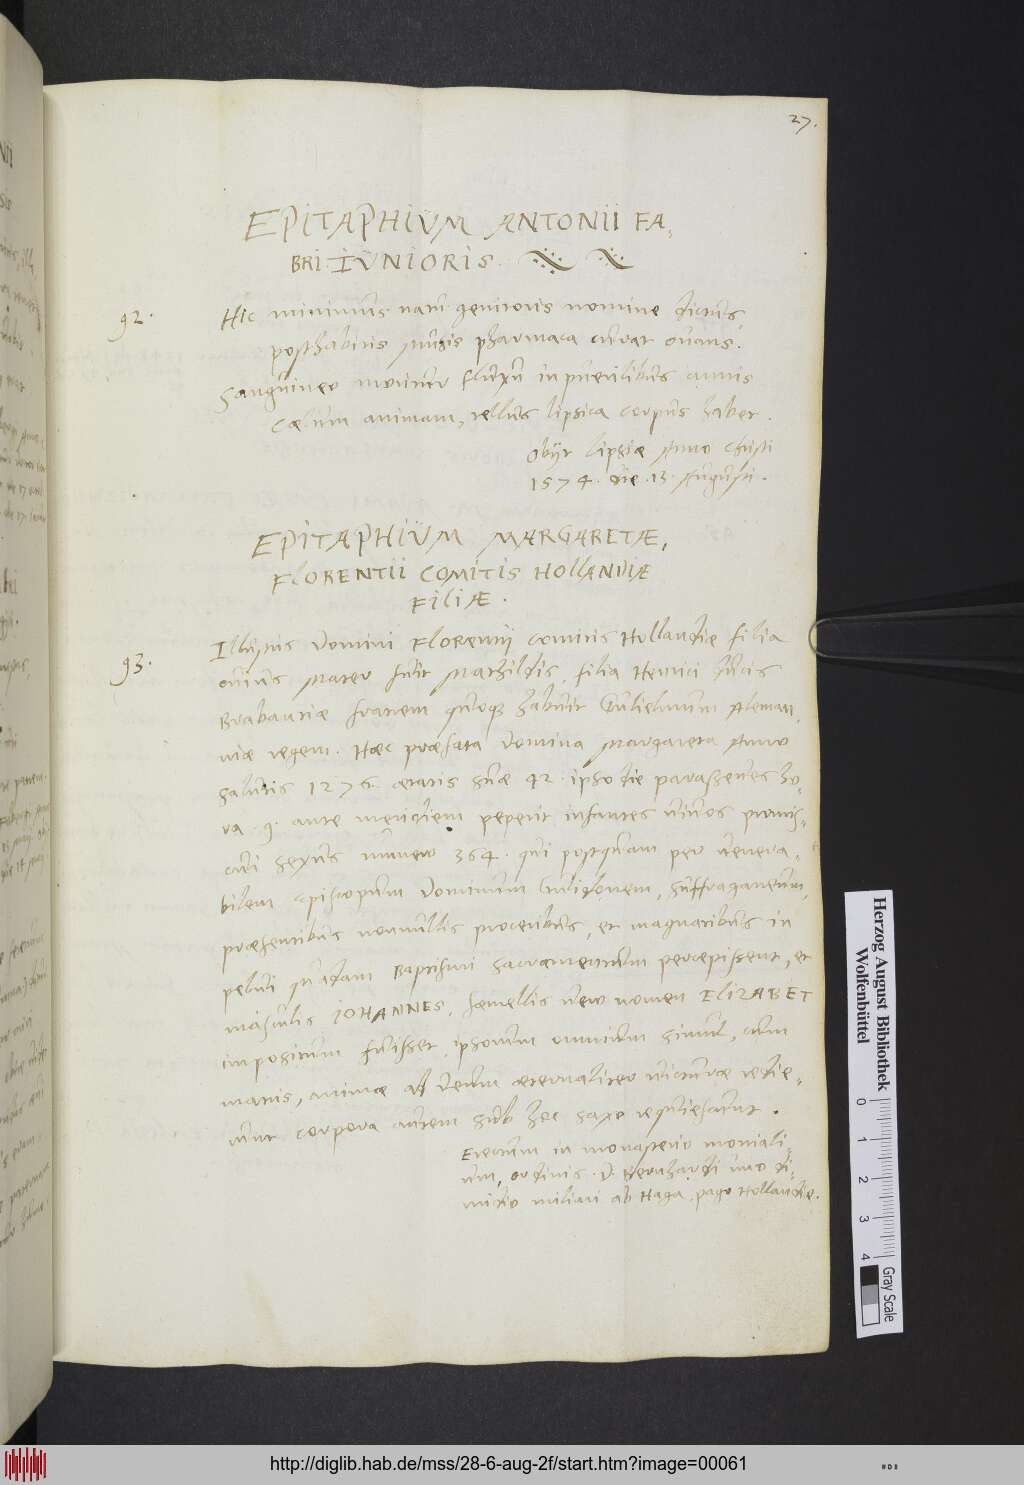 27.
EPITAPHIUM ANTONII FA-
BRI IUNIORIS.
92.
Hic minimus natu genitoris nomine dictus,
posthabitis Musis pharmaca curat ovans.
Sanguineo moritur fluxu in puerilibus annis
Cælum animam, tellus lipsica corpus habet.
Obijt lipsiæ Anno Christi
1574. die .13. Augusti.
EPITAPHIUM MARGARETÆ,
FLORENTII COMITIS HOLLANDIÆ
FILIÆ.
93.
Illustris domini Florentij comitis Hollandię filia
cuius Mater fuit Mathildis, filia Henrici Ducis
Brabantiæ fratrem quoque habuit Gulielmum Aleman-
niæ regem. Hæc præfata domina Margareta Anno
salutis 1276. ætatis suæ 42. ipso die parasceues ho-
ra .9. ante meridiem peperit infantes vivos promis-
cui sexus numero 364. qui postquam per venera-
bilem episcopum dominum Guidonem, suffraganeum,
præsentibus nonnullis proceribus, et magnatibus in
pelui quadam Baptismi sacramentum percepissent, et
masculis IOHANNES, fæmellis vero nomen ELIZABET
impositum fuisset, ipsorum omnium simul, cum
matris, animæ ad deum æternaliter victuræ redie-
runt corpora autem sub hoc saxo requiescunt.
Erectum in monasterio moniali-
um, ordinis .D. Bernhardi uno di-
midio miliari ab Haga, pago Hollandię.
Herzog August Bibliothek
Wolfenbüttel
0 1 2 3 4
Gray Scale
http://diglib.hab.de/mss/28-6-aug-2f/start.htm?image=00061